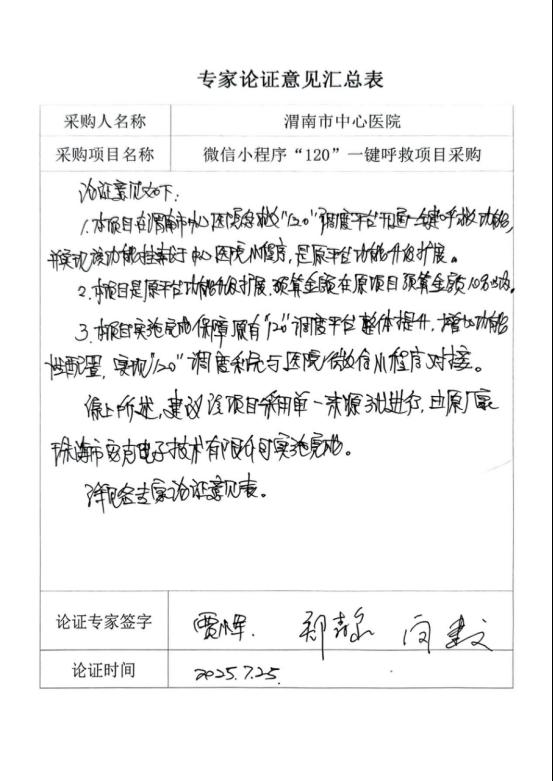 专家论证意见汇总表
采购人名称 渭南市中心医院
采购项目名称 微信小程序“120”一键呼救项目采购
论证意见如下:
1.本项目在渭南市中心医院急救“120”调度平台开通一键呼救功能,
并实现该功能挂载于中心医院小程序,是原平台功能升级扩展。
2.本项目是原平台功能升级扩展,预算金额在原项目预算金额10%以内。
3.本项目实施完成保障原有“120”调度平台整体提升,增加功能
性配置,实现“120”调度系统与医院微信小程序对接。
综上所述,建议该项目采用单一来源方式进行,由原厂家
珠海市安克电子技术有限公司实施完成。
详见各专家论证意见表。
论证专家签字 贾辉 郑
论证时间 2025.7.25